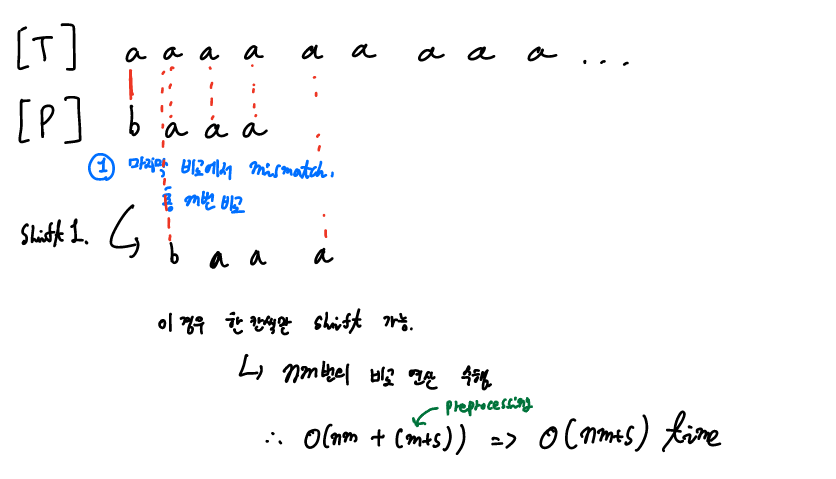 [T] a a a a a a a a a ...
[P] b a a a
① 마지막 비교에서 mismatch.
총 m번 비교
shift 1.
b a a a
이 경우 한 칸씩만 shift 가능.
↳ nm번의 비교 연산 수행
preprocessing
∴ O(nm + (m+s)) => O(nm+s) time